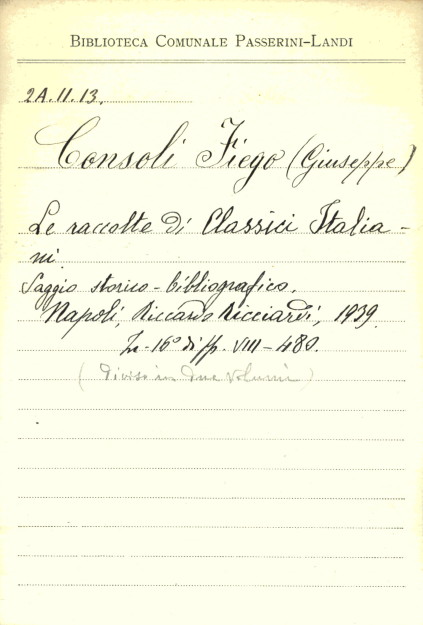 BIBLIOTECA COMUNALE PASSERINI-LANDI
2A.II.13.
Consoli Fiego (Giuseppe)
Le raccolte di Classici Italia-
ni
Saggio storico-bibliografico.
Napoli, Riccardo Ricciardi, 1939.
In-16° di pp. VIII-480.
(Diviso in due volumi)